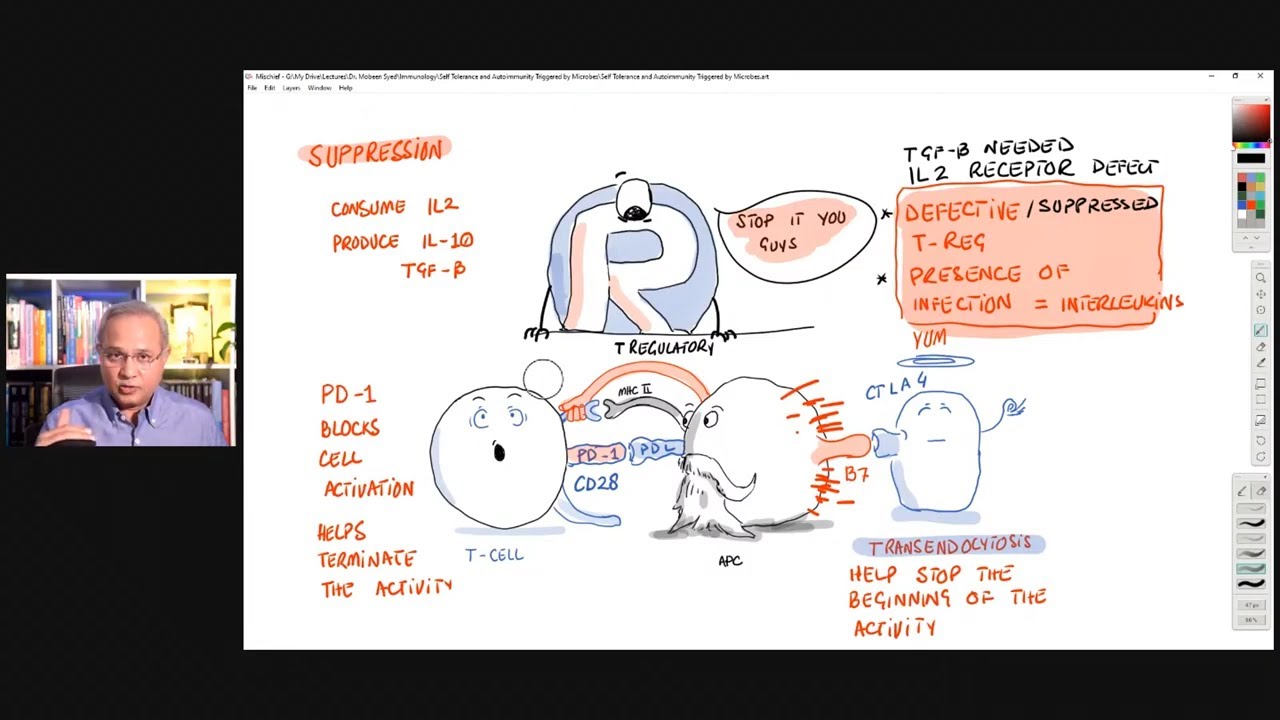 Mischief - G:\My Drive\Lectures\Dr. Mobeen Syed\Immunology\Self Tolerance and Autoimmunity Triggered by Microbes\Self Tolerance and Autoimmunity Triggered by Microbes.art
File Edit Layers Window Help
SUPPRESSION
CONSUME IL2
PRODUCE IL-10
TGF-B
STOP IT YOU
GUYS
TGF-B NEEDED
IL2 RECEPTOR DEFECT
* DEFECTIVE / SUPPRESSED
T-REG
* PRESENCE OF
INFECTION = INTERLEUKINS
YUM
T REGULATORY
PD-1
BLOCKS
CELL
ACTIVATION
HELPS
TERMINATE
THE ACTIVITY
MHC II
PD-1
PDL
CD28
T-CELL
APC
B7
CTLA4
TRANSENDOCYTOSIS
HELP STOP THE
BEGINNING OF THE
ACTIVITY
47 px
86%